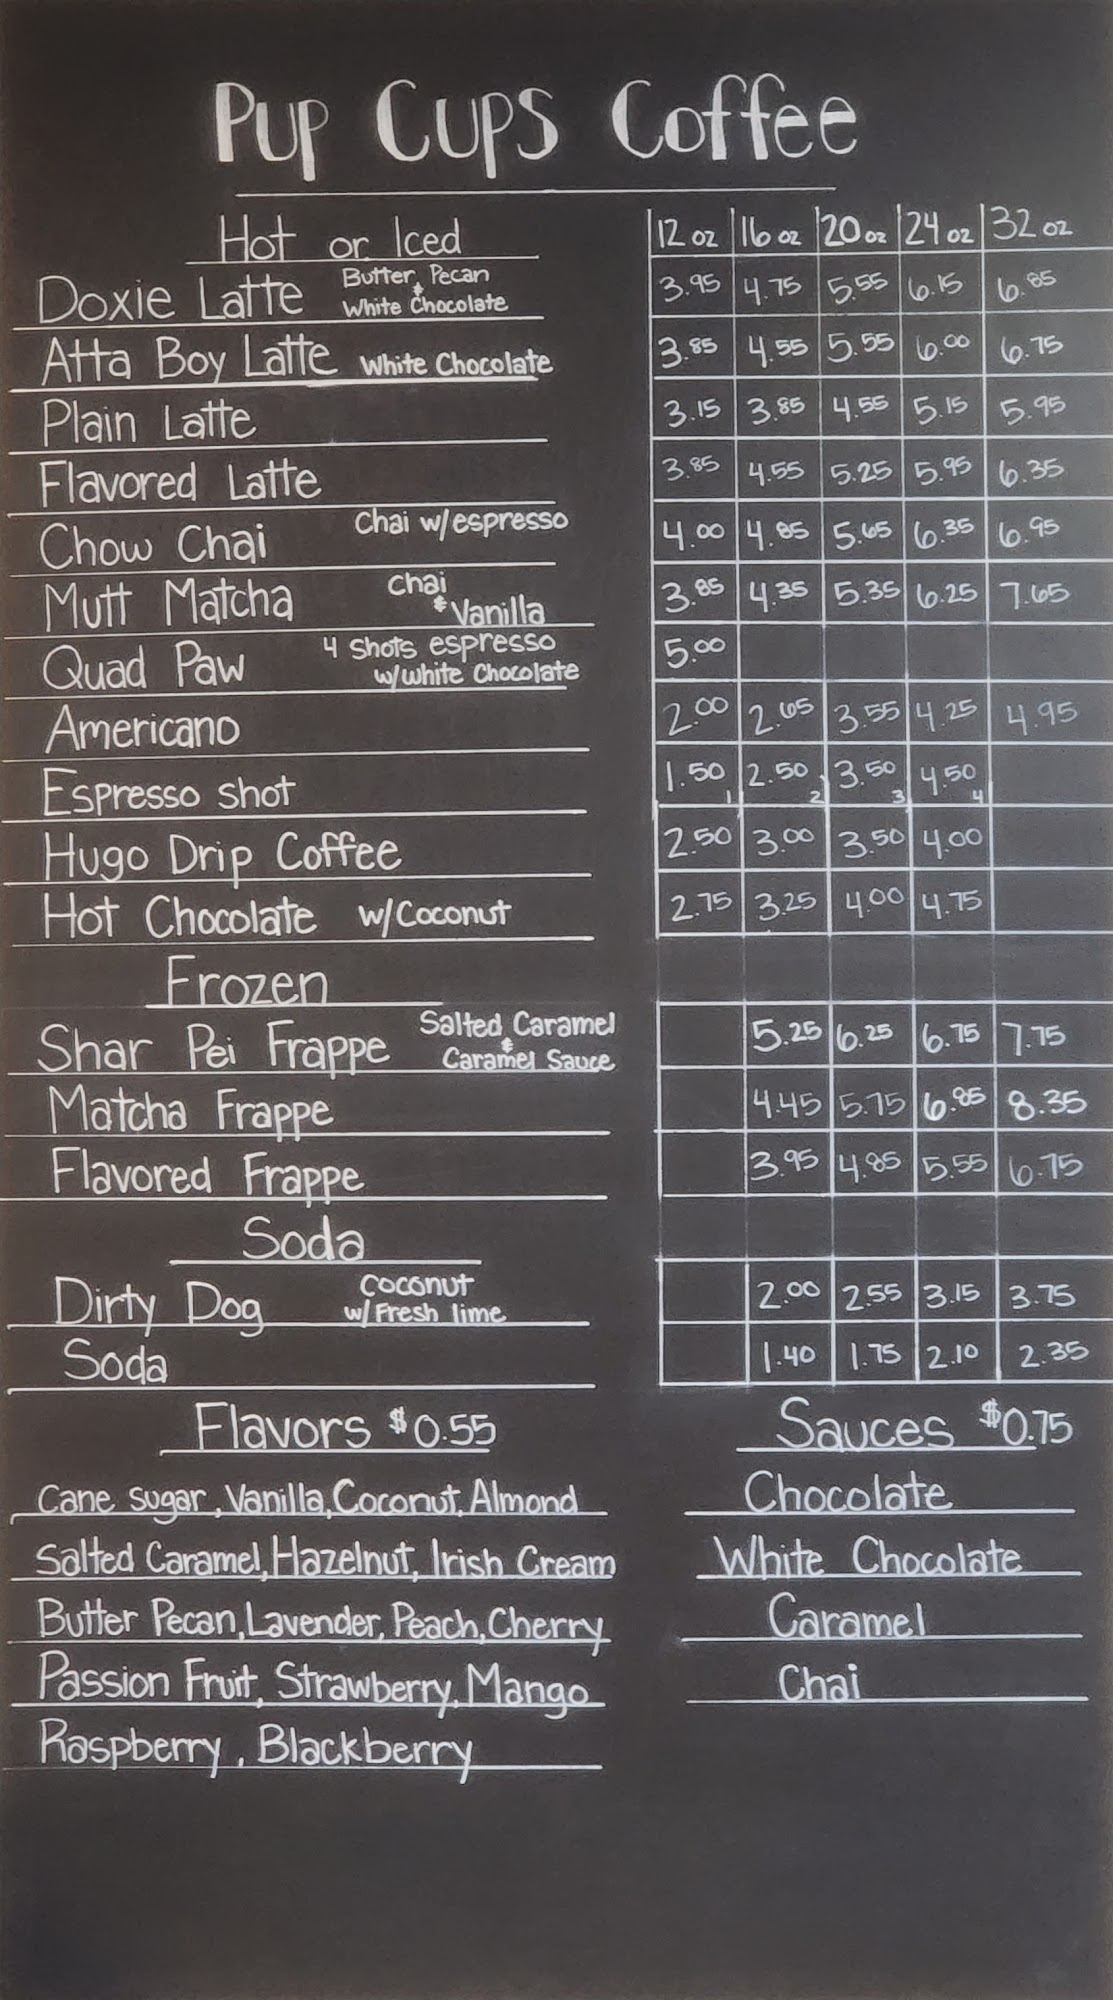 Pup Cups Coffee
Hot or Iced 12 oz 16 oz 20 oz 24 oz 32 oz
Doxie Latte Butter Pecan & White Chocolate 3.95 4.75 5.55 6.15 6.85
Atta Boy Latte White Chocolate 3.85 4.55 5.55 6.00 6.75
Plain Latte 3.15 3.85 4.55 5.15 5.95
Flavored Latte 3.85 4.55 5.25 5.95 6.35
Chow Chai Chai w/espresso 4.00 4.85 5.65 6.35 6.95
Mutt Matcha Chai & Vanilla 3.85 4.35 5.35 6.25 7.65
Quad Paw 4 Shots espresso w/white Chocolate 5.00
Americano 2.00 2.65 3.55 4.25 4.95
Espresso shot 1.50 1 2.50 2 3.50 3 4.50 4
Hugo Drip Coffee 2.50 3.00 3.50 4.00
Hot Chocolate w/Coconut 2.75 3.25 4.00 4.75
Frozen
Shar Pei Frappe Salted Caramel & Caramel Sauce 5.25 6.25 6.75 7.75
Matcha Frappe 4.45 5.75 6.85 8.35
Flavored Frappe 3.95 4.85 5.55 6.75
Soda
Dirty Dog Coconut w/Fresh lime 2.00 2.55 3.15 3.75
Soda 1.40 1.75 2.10 2.35
Flavors $0.55
Cane sugar, Vanilla, Coconut, Almond
Salted Caramel, Hazelnut, Irish Cream
Butter Pecan, Lavender, Peach, Cherry
Passion Fruit, Strawberry, Mango
Raspberry, Blackberry
Sauces $0.75
Chocolate
White Chocolate
Caramel
Chai